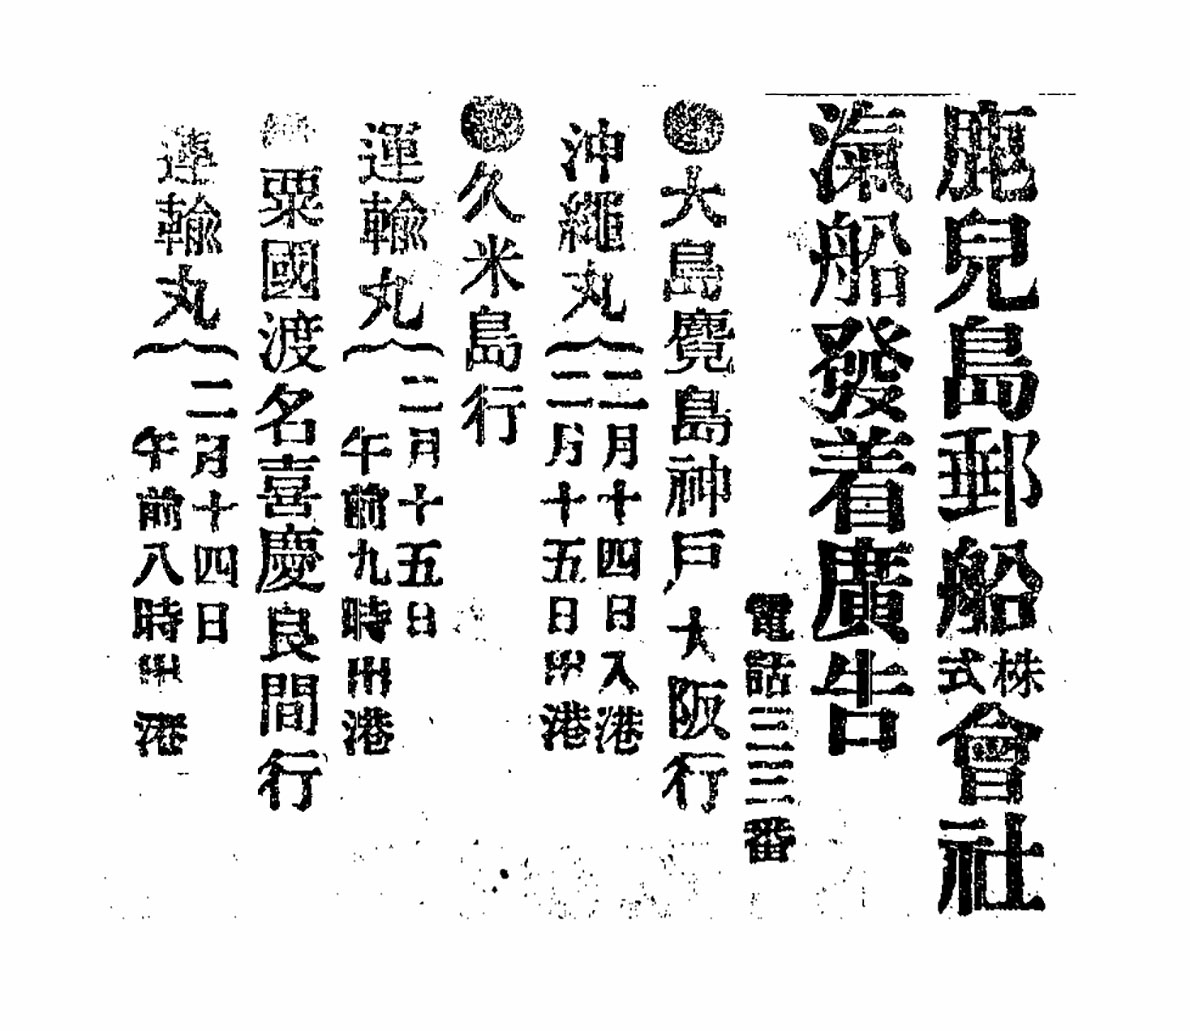 鹿兒島郵船株式會社
滊船發着廣告
電話三三番
●大島麑島神戸大阪行
沖繩丸
二月十四日入港
二月十五日出港
●久米島行
運輸丸
二月十五日
午前九時出港
●粟國渡名喜慶良間行
運輸丸
二月十四日
午前八時出港